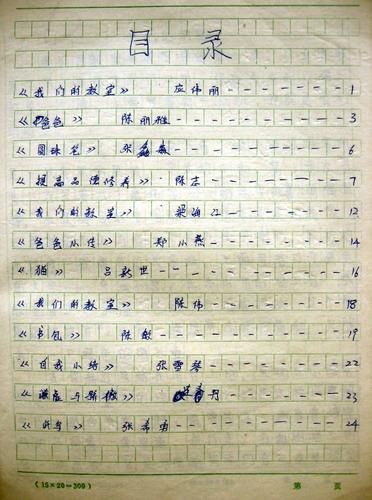 目 录
《我们的教室》 应伟丽 ------- 1
《爸爸》 陈丽雅 ------- 3
《圆珠笔》 张 ------- 6
《提高品德修养》 陈志 ------- 7
《我们的教室》 梁海江 ------- 12
《爸爸小传》 郑小燕 ------- 14
《猫》 吕新世 ------- 16
《我们的教室》 陈伟 ------- 18
《书包》 陈敏 ------- 19
《自我小结》 张雪琴 ------- 22
《谦虚与骄傲》 丹 ------- 23
张希勇 ------- 24
(15×20=300) 第 页